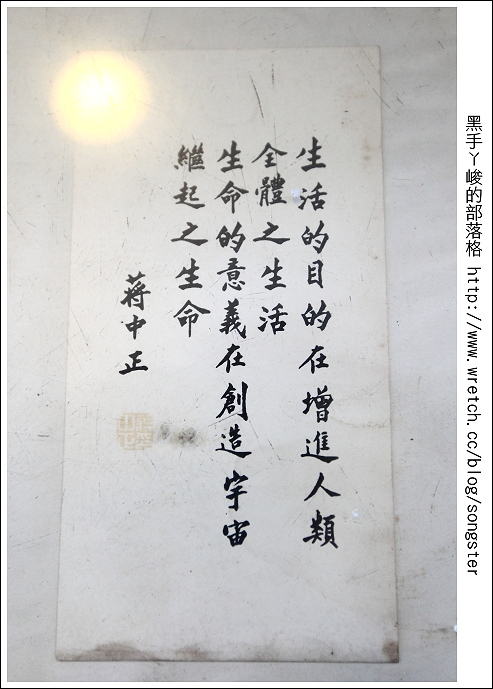 生活的目的在增進人類
全體之生活
生命的意義在創造宇宙
繼起之生命
蔣中正
黑手ㄚ峻的部落格 http://www.wretch.cc/blog/songster